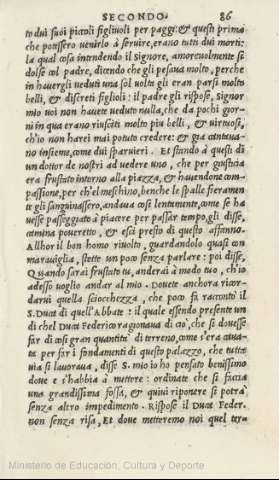 SECONDO. 86
to dui suoi piccoli figliuoli per paggi: & questi prima
che potessero uenirlo à seruire, erano tutti dui morti:
la qual cosa intendendo il Signore, amoreuolmente si
dolse col padre, dicendo che gli pesaua molto, perche
in hauergli ueduti una sol uolta gli eran parsi molto
belli, & discreti figlioli: il padre gli rispose, Signor
mio uoi non hauete ueduto nulla, che da pochi gior-
ni in qua erano riusciti molto piu belli, & uirtuosi,
ch'io non harei mai potuto credere: & gia cantaua-
no insieme, come dui sparuieri. Et stando à questi di
un dottor de nostri ad uedere uno, che per giustitia
era frustato intorno alla piazza, & hauendone com-
passione, per ch'el meschino, benche le spalle fieramen
te gli sanguinassero, andaua cosi lentamente, come se ha
uesse passeggiato à piacere per passar tempo, gli disse,
camina poueretto, & esci presto di questo affanno.
Allhor il bon homo riuolto, guardandolo quasi con
marauiglia, stette un poco senza parlare: poi disse,
Quando sarai frustato tu, anderai à modo tuo, ch'io
adesso uoglio andar al mio. Douete anchora ricor-
darui quella sciocchezza, che poco fa raccontò il
S. Duca di quell'Abbate: il quale essendo presente un
di chel Duca Federico ragionaua di cio, che si douesse
far di cosi gran quantita di terreno, come s'era caua-
ta per far i fondamenti di questo palazzo, che tutta
uia si lauoraua, disse S. mio io ho pensato benissimo
doue e s'habbia à mettere: ordinate che si faccia
una grandissima fossa, & quiui riponere si potrà
senza altro impedimento. Rispose il Duca Feder.
non senza risa, Et doue metteremo noi quel terr
Ministerio de Educación, Cultura y Deporte